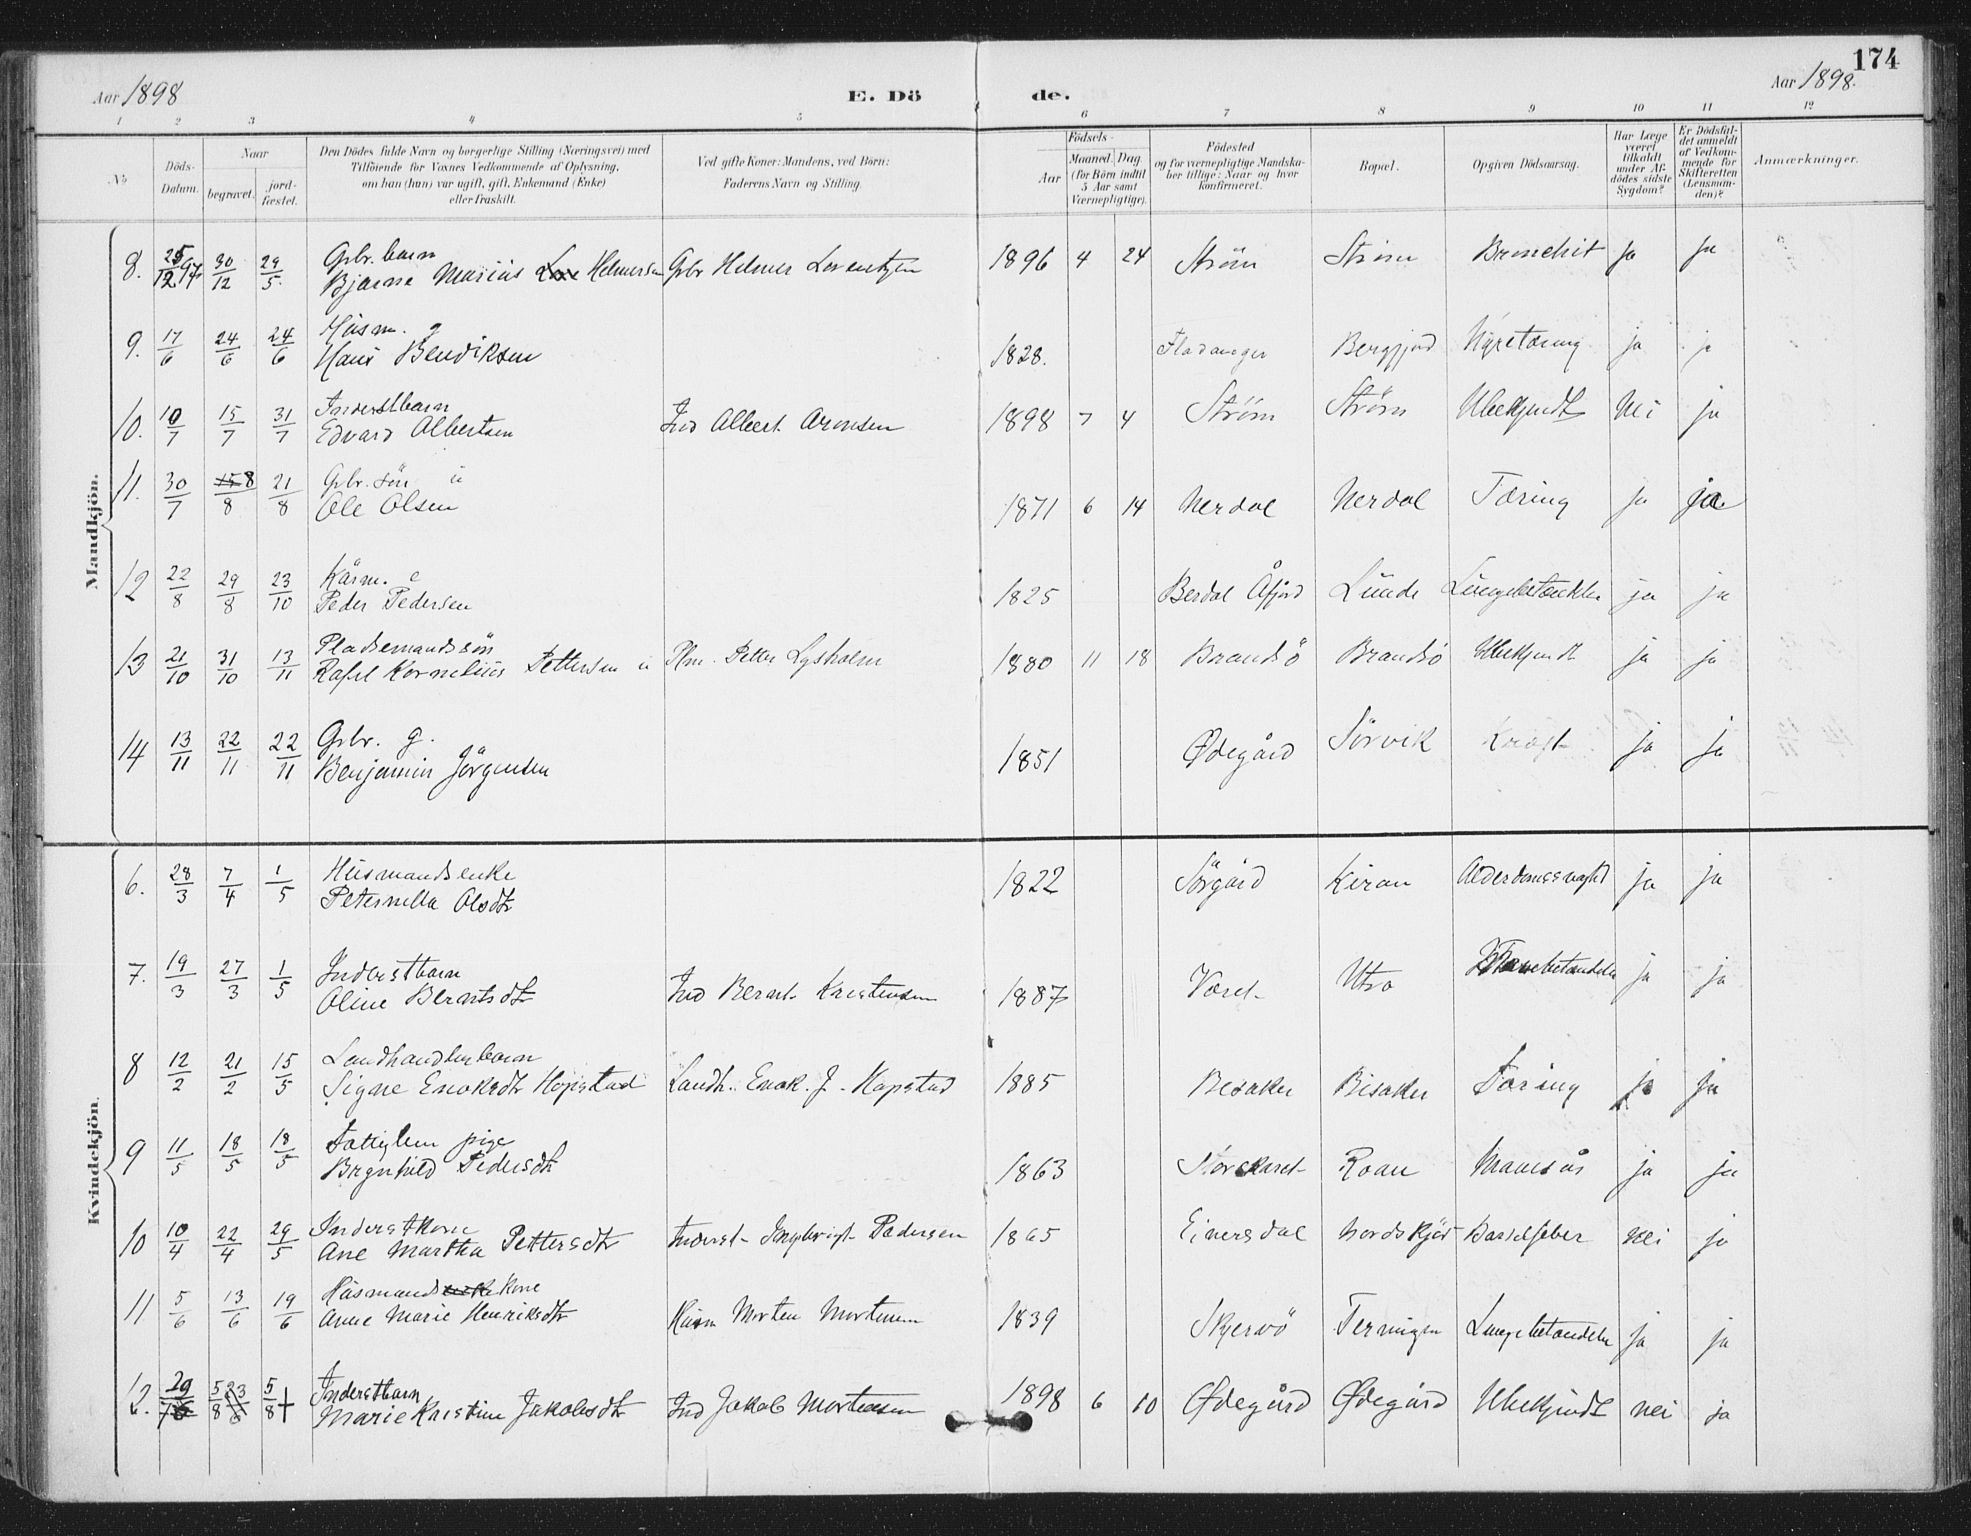 174
Aar 1898 E. Dö de. Aar 1898.
1 2 3 4 5 6 7 8 9 10 11 12
No
Döds-Datum.
Naar
begravet.
jord-fæstet.
Den Dödes fulde Navn og borgerlige Stilling (Næringsvei) med
Tilföiende for Voxnes Vedkommende af Oplysning,
om han (hun) var ugift, gift, Enkemand (Enke)
eller fraskilt.
Ved gifte Koner: Mandens, ved Börn:
Faderens Navn og Stilling.
Födsels-
Aar
Maaned. Dag.
(for Börn indtil
5 Aar samt
Værnepligtige).
Födested
og for værnepligtige Mandska-
ber tillige: Naar og hvor
konfirmeret.
Bopæl.
Opgiven Dödsaarsag.
Har Læge
været
tilkaldt
under Af-
dödes sidste
Sygdom?
Er Dödsfal-
det anmeldt
af Vedkom-
mende for
Skifteretten
(Lensman-
den)?
Anmærkninger.
Mandkjön.
8. 25/12 97 30/12 29/5 Gbr. barn
Bjarne Marius Helmersen Gbr Helmer Lorentzen 1896 4 24 Strøm Strøm Bronchit ja ja
9. 17/6 24/6 24/6 Husm. g
Hans Bendiksen 1828. Fladanger Bergfjord ja ja
10. 10/7 15/7 31/7 Inderstbarn
Edvard Albertsen Ind Albert Aronsen 1898 7 4 Strøm Strøm Ubekjendt Nei ja
11. 30/7 8/8 21/8 Gbr. sön u
Ole Olsen 1871 6 14 Nerdal Nerdal Tæring ja ja
12 22/8 29/8 23/10 Kårm. e
Peder Pedersen 1825 Berdal Åfjord Lunde Lungebetændelse ja ja
13 21/10 31/10 13/11 Pladsemandssön
Rafel Kornelius Pettersen u Plm. Petter Lysholm 1880 11 18 Brandsö Brandsö Ubekjendt ja ja
14 13/11 22/11 22/11 Gbr. g.
Benjamin Jörgensen 1851 Ødegård Sörvik Kræft ja ja
Kvindekjön.
6. 28/3 7/4 1/5 Husmandsenke
Peternella Olsdtr 1822 Sörgård Kiran Alderdomssvaghd ja ja
7. 19/3 27/3 1/5 Inderstbarn
Oline Berntsdtr Ind Bernt Kristensen 1887 Været Utro ja ja
8 12/2 21/2 15/5 Landhandlerbarn
Signe Enoksdtr Hopstad Landh. Enok. J. Hopstad 1885 Besaker Bisaker Tæring ja ja
9 11/5 18/5 18/5 Fattiglem pige
Brynhild Pedersdtr 1863 Roan ja ja
10 10/4 22/4 29/5 Inderstkone
Ane Martha Pettersdtr Inderst Ingbrigt Pedersen 1865 Einersdal Nordskjör Barselfeber nei ja
11 5/6 13/6 19/6 Husmands enke kone
Anne Marie Henriksdtr Husm Morten Mortensen 1839 Skjervö Terningen Lungebetændelse ja ja
12. 29/ 5/8 23/6 5/8 + Inderstbarn
Marie Kristine Jakobsdtr Ind Jakob Mortensen 1898 6 10 Ødegård Ødegård Ubekjendt nei ja